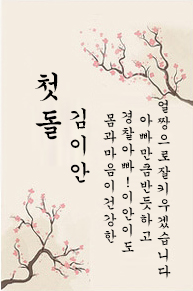 첫돌
김이안
몸과마음이건강한
경찰아빠!이안이도
아빠만큼반듯하고
얼짱으로잘키우겠습니다